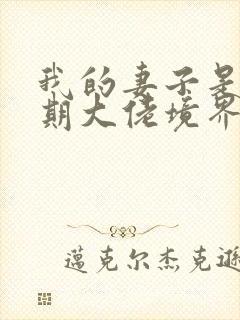 我的妻子是
期大佬境界
蓮克尔杰克遜